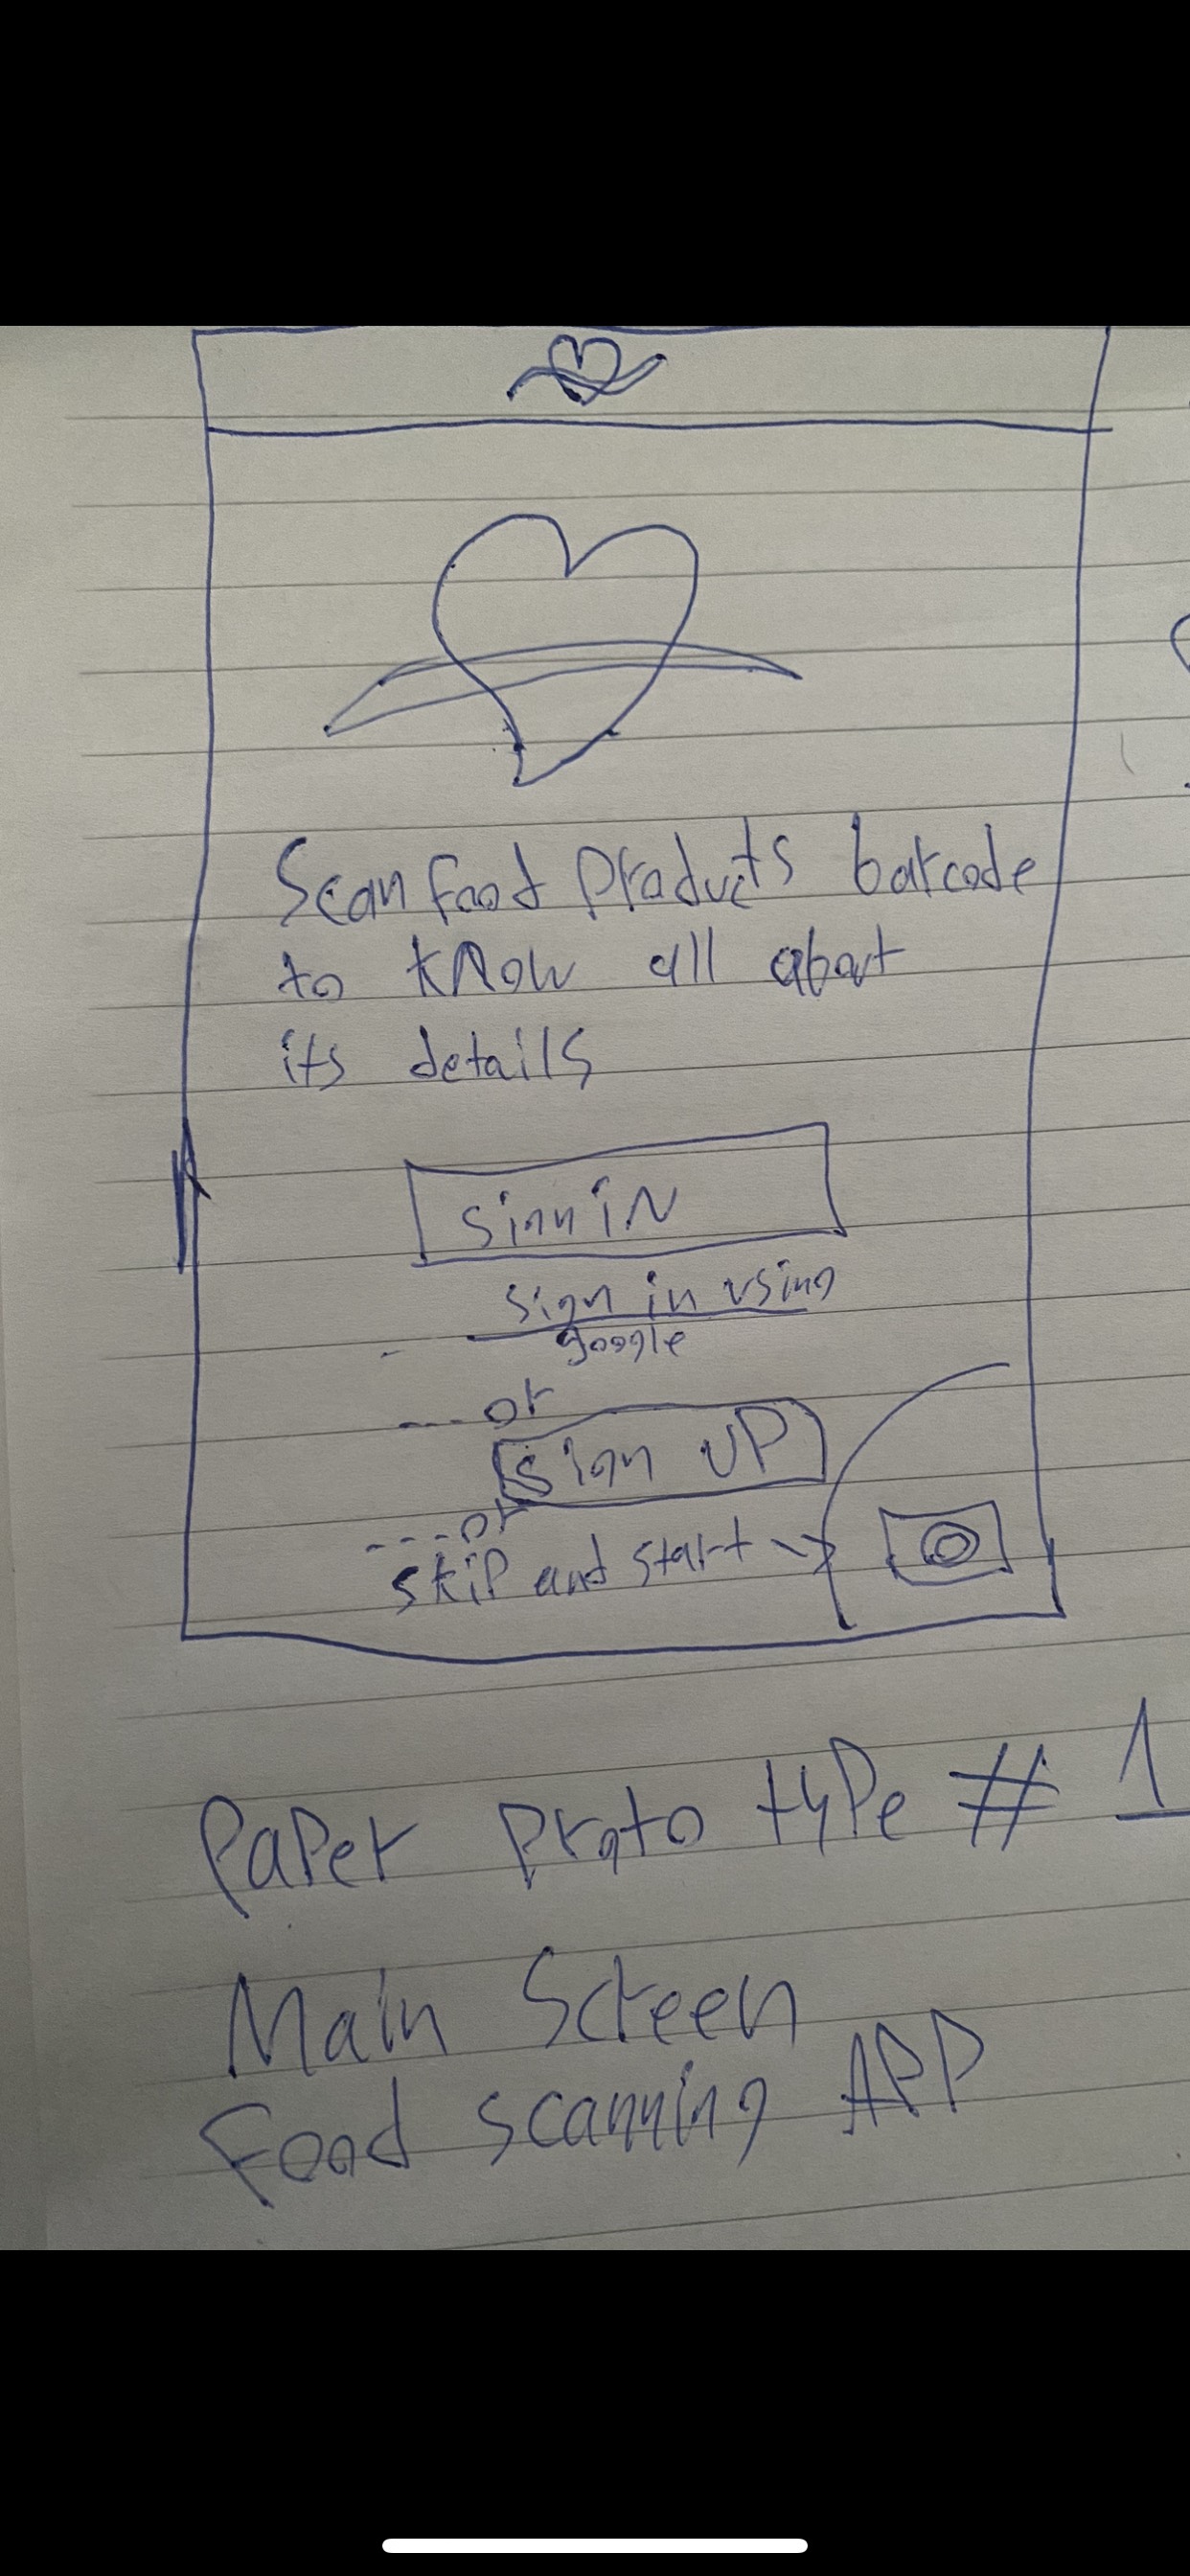 Scan food products barcode
to know all about
its details
sinn iN
sign in using
google
---- or
sign UP
---- or
skip and start
Paper proto type # 1
Main Screen
Food scanning APP